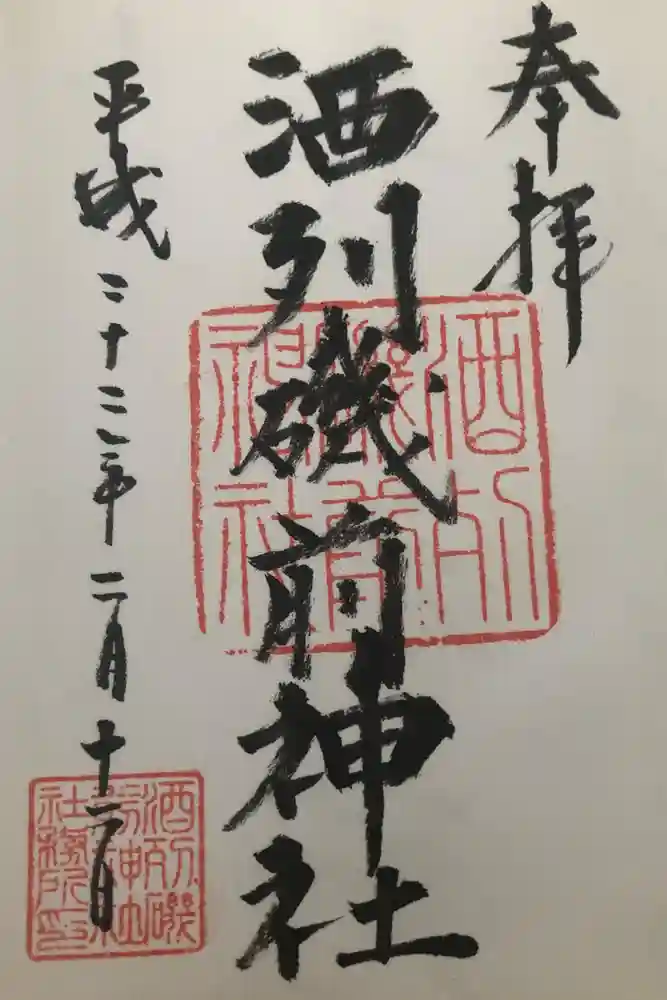 奉拝
酒列磯前神社
平成二十三年二月十二日
酒列
磯前
神社
酒列磯
前神社
社務所印